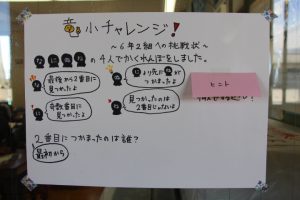 小チャレンジ!
~6年2組への挑戦状~
なにぬね の4人でかくれんぼをしました。
な 最後から2番目に見つかったよ
ぬ により先にねがつかまったよ
に 奇数番目に見つかったよ
ね 見つかったのは2番目じゃないよ
ヒント
2番目につかまったのは誰?
最初から